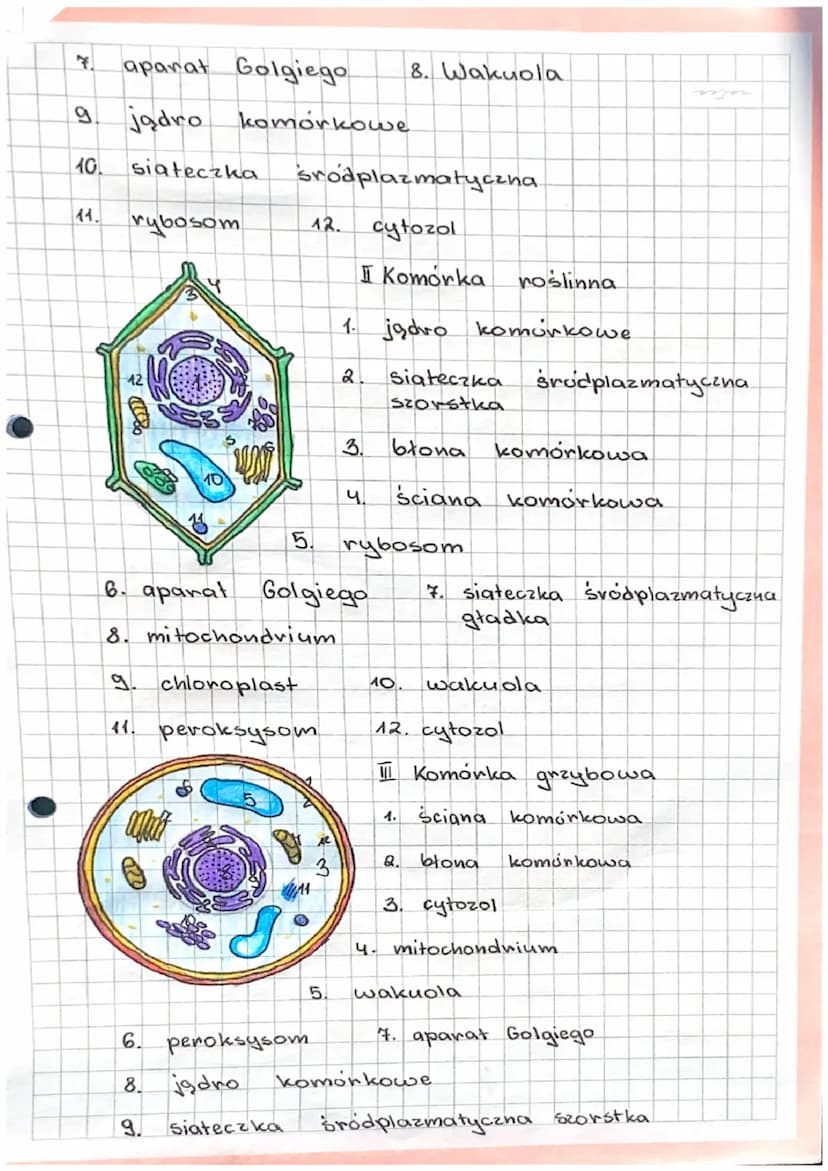 7. aparat Golgiego 8. Wakuola
9. jądro komórkowe
10. siateczka śródplazmatyczna
11. rybosom 12. cytozol
II Komórka roślinna
1. jądro komórkowe
2. siateczka śródplazmatyczna
szorstka
3. błona komórkowa
4. ściana komórkowa
5. rybosom
6. aparat Golgiego 7. siateczka śródplazmatyczna
gładka
8. mitochondrium
9. chloroplast 10. wakuola
11. peroksysom 12. cytozol
III Komórka grzybowa
1. ściana komórkowa
2. błona komórkowa
3. cytozol
4. mitochondrium
5. wakuola
6. peroksysom 7. aparat Golgiego
8. jądro komórkowe
9. siateczka śródplazmatyczna szorstka
3 4
1
12
8
5
6
10
11
6
5
7
3
8
11
10